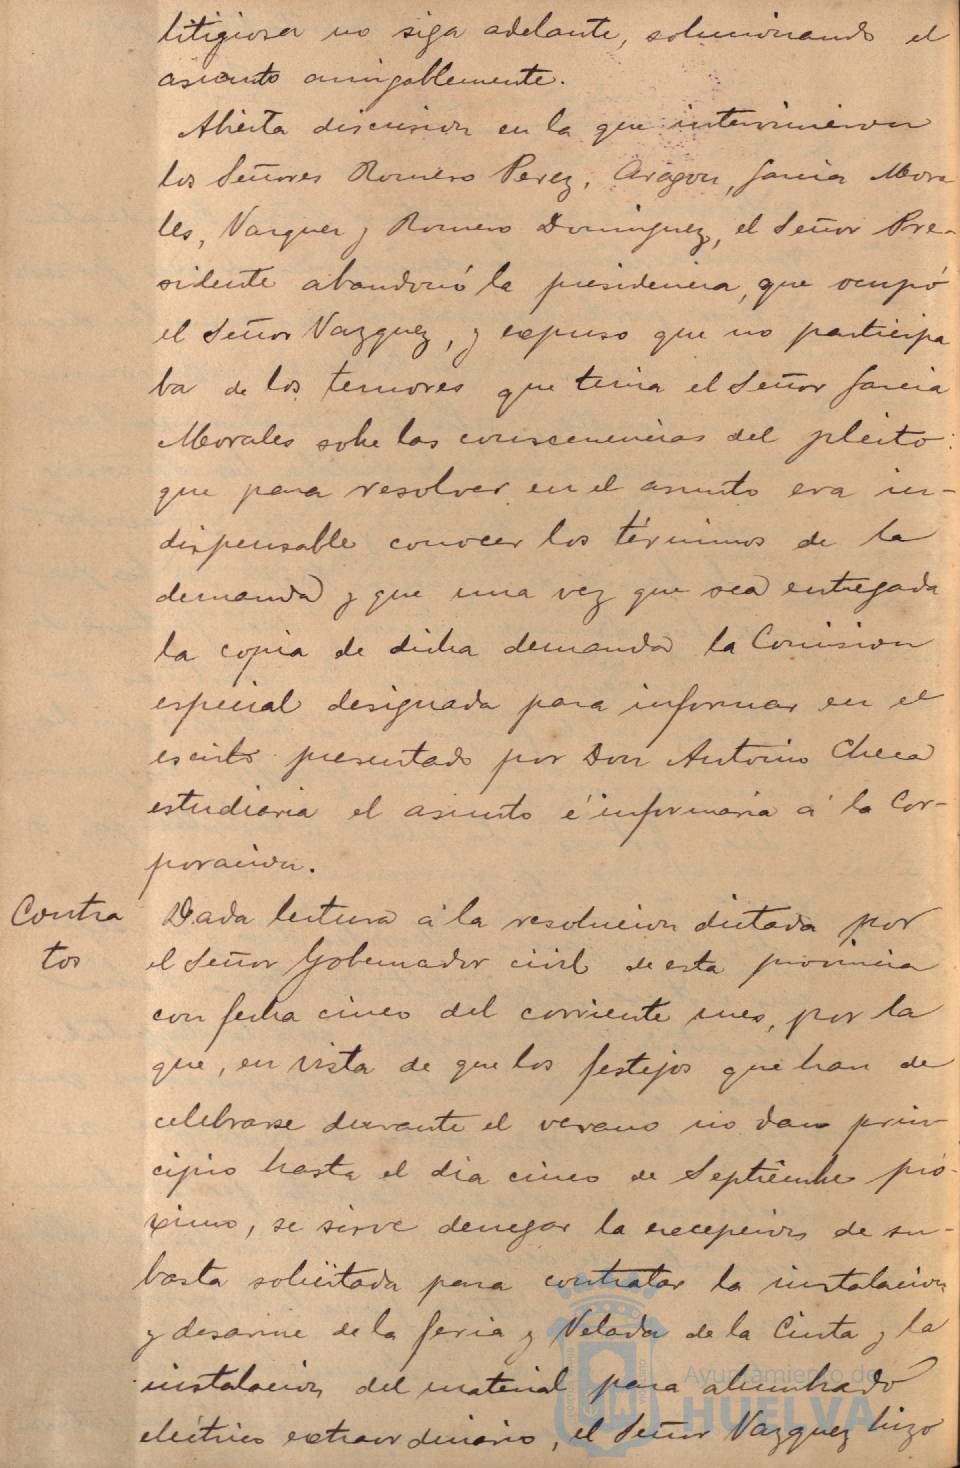 litigiosa no siga adelante, solucionando el
asunto amigablemente.
Abierta discusion en la que intervinieron
los Señores Romero Perez, Aragon, Garcia Mora-
les, Vazquez y Romero Dominguez, el Señor Pre-
sidente abandonó la presidencia, que ocupó
el Señor Vazquez, y expuso que no participa
ba de los temores que tenia el Señor Garcia
Morales sobre las consecuencias del pleito:
que para resolver en el asunto era in-
dispensable conocer los términos de la
demanda y que una vez que sea entregada
la copia de dicha demanda la Comision
especial designada para informar en el
escrito presentado por Don Antonio Checa
estudiaria el asunto é informaria á la Cor-
poracion.
Contra
tos
Dada lectura á la resolucion dictada por
el Señor Gobernador civil de esta provincia
con fecha cinco del corriente mes, por la
que, en vista de que los festejos que han de
celebrarse durante el verano no dan prin-
cipio hasta el dia cinco de Septiembre pró-
ximo, se sirve denegar la excepcion de su-
basta solicitada para contratar la instalacion
y desarme de la feria y Velada de la Cinta y la
instalacion del material para alumbrado
eléctrico extraordinario, el Señor Vazquez hizo
Ayuntamiento de
HUELVA